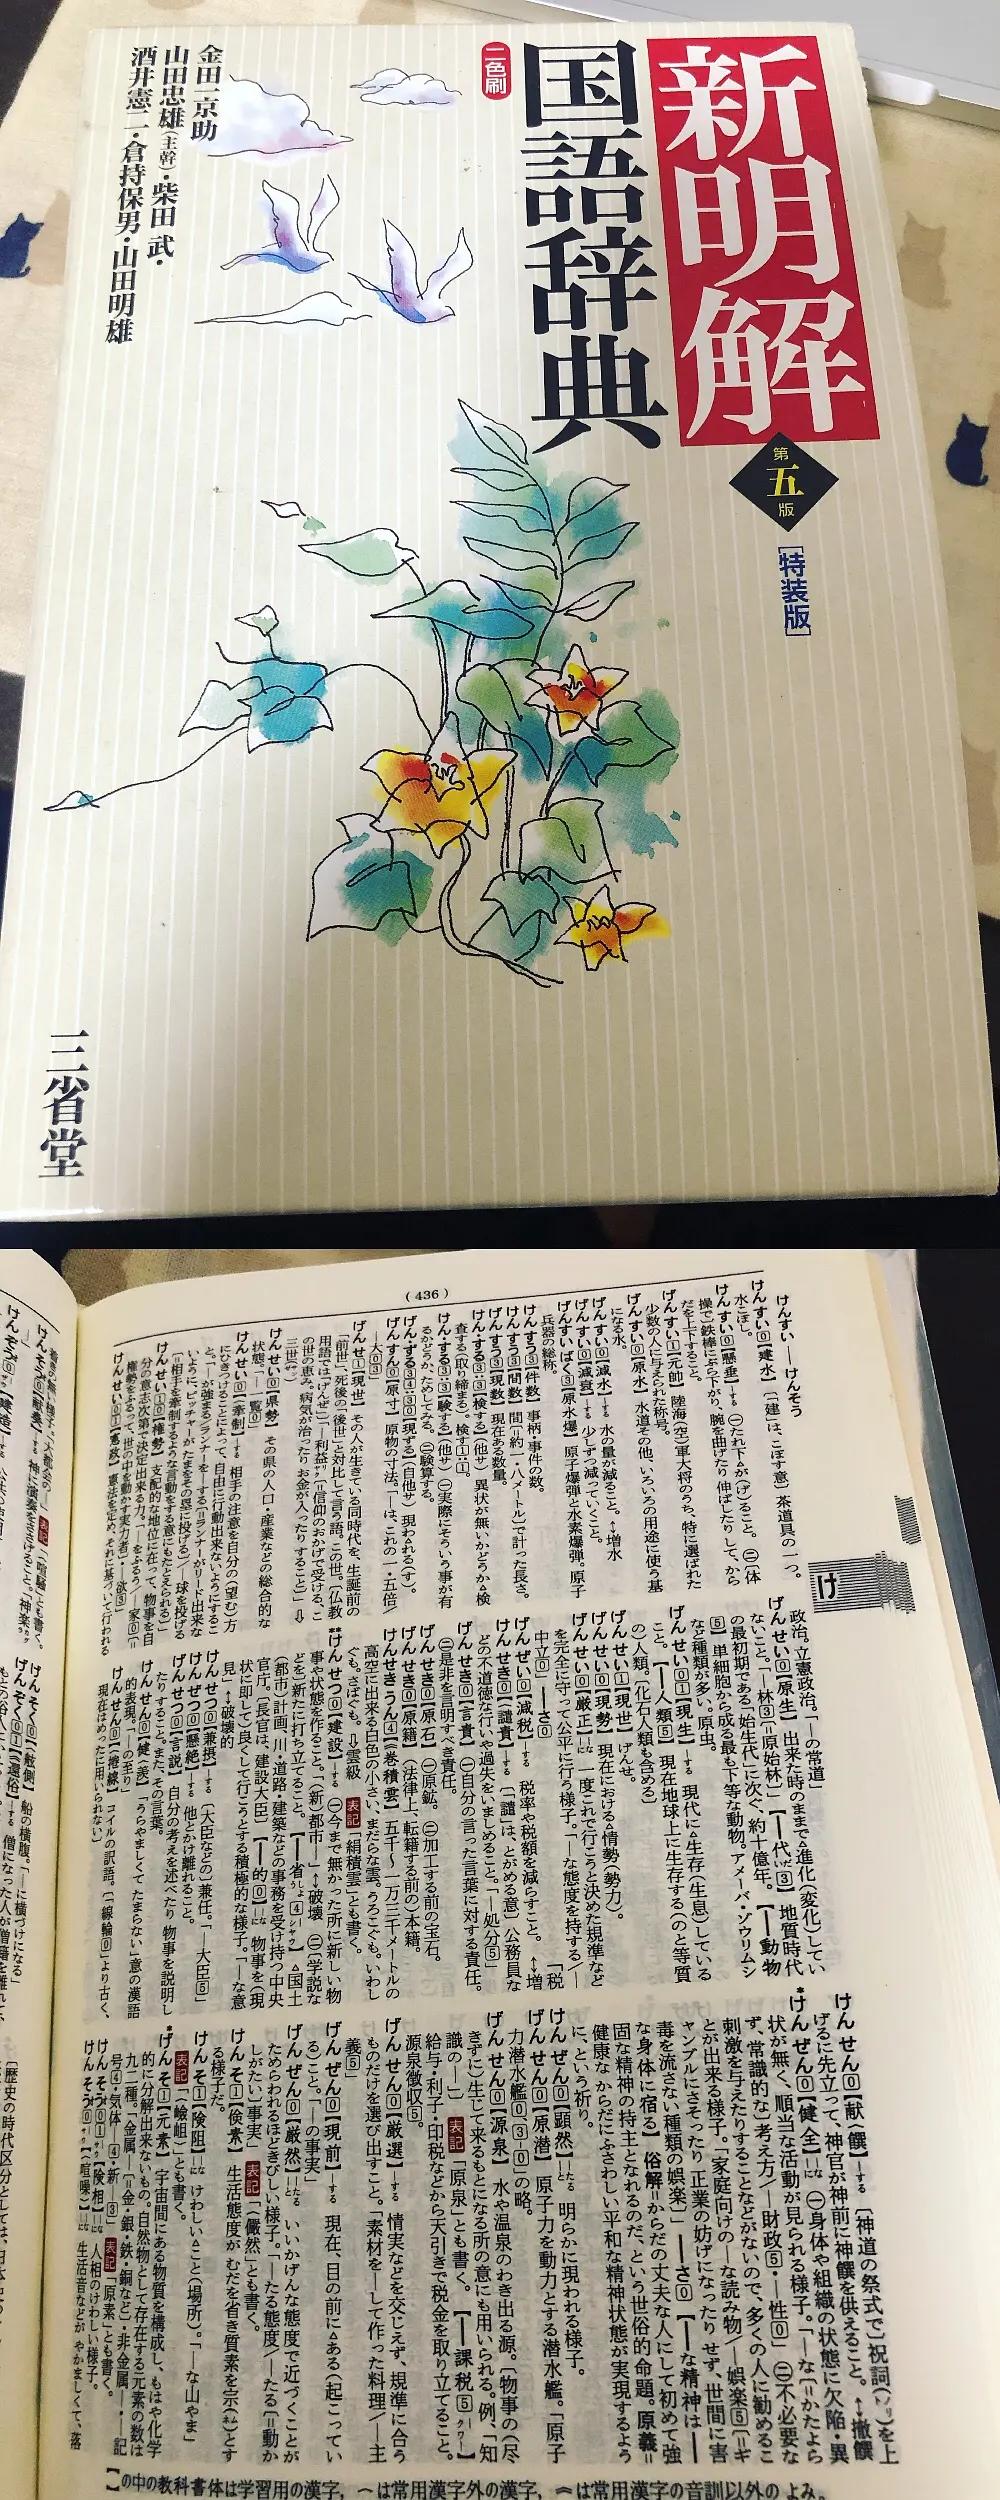 新明解
国語辞典
第五版
[特装版]
二色刷
金田一京助
山田忠雄(主幹)・柴田 武・
酒井憲二・倉持保男・山田明雄
三省堂
(436)
けんすい——けんそう
け
けん すい⓪【建水】〔「建」は、こぼす意〕茶道具の一つ。
水こぼし。
けん すい⓪【懸垂】
操で〕鉄棒にぶら下がり、腕を曲げたり伸ばしたりして、から
だを上下すること。
げん すい①【元帥】 陸海(空)軍大将のうち、特に選ばれた
少数の人に与えられた称号。
げん すい⓪【原水】 水道その他、いろいろの用途に使う基
になる水。
げん すい⓪【減水】―する 水の量が減ること。↔増水
げん すい⓪【減衰】―する 少しずつ減っていくこと。
げんすい ばく③【原水爆】 原子爆弾と水素爆弾。原子
兵器の総称。
けん すう③【件数】 事柄・事件の数。
けん すう③【間数】 間(=約一・八メートル)で計った長さ。
げん すう③【現数】 現在ある数量。
るかどうか、ためしてみる。㊁験算する。
げん すん⓪【原寸】 原物の寸法。「―は、これの一・五倍/
―大⓪③」
げん せ①【現世】 その人が生きている同時代を、生誕前の
「前世」、死後の「後世」と対比して言う語。この世。〔仏教
用語では「げんぜ」〕
三世(サンゼ)
けん せい⓪【県勢】 その県の人口・産業などの総合的な
状態。「―一覧⓪」
けん せい⓪【牽制】―する 相手の注意を自分の(望む)方
にひきつけることによって、自由に行動出来ないようにするこ
けん せい⓪【権勢】 支配的な地位に在って、物事を自
分の意志次第で決定出来る力。
政治。立憲政治。「―の常道」
げん せい⓪【原生】 出来た時のままで△進化(変化)してい
ないこと。「―林③(=原始林)」
の最初期である「始生代」に次ぐ、約十億年。【―動物
⑤】単細胞から成る最も下等な動物。アメーバ・ゾウリムシ
など種類が多い。原虫。
げん せい⓪①【現生】―する 現代に△生存(生息)している
こと。【―人類⑤】現在地球上に生存する(のと等質
の)人類。〔化石人類も含める〕
げん せい①【現世】 げんせ。
げん せい⓪【現勢】 現在における△情勢(勢力)。
げん せい⓪【厳正】 一度これで行こうと決めた規準など
を完全に守って公平に行う様子。「―な態度を持する/―
中立⓪」【―さ⓪】
げん ぜい⓪【減税】―する 税率や税額を減らすこと。↔増
税
けん せき⓪【譴責】―する 〔「譴」は、とがめる意〕公務員な
どの不道徳な行いや過失をいましめること。「―処分⑤」
げん せき⓪【言責】 ㊀自分の言った言葉に対する責任。
㊁是非を言明すべき責任。
げん せき⓪【原石】 ㊀原鉱。㊁加工する前の宝石。
げん せき⓪【原籍】 (法律上、転籍する前の)本籍。
けんせき うん④【巻積雲】 五千〜一万三千メートルの
高空に出来る白色の小さい、まだらな雲。うろこぐも。いわし
ぐも。さばぐも。⇩雲級 表記「絹積雲」とも書く。
けん せつ⓪【建設】―する ㊀今まで無かった所に新しい物
事や状態を作ること。「(新)都市―」↔破壊 ㊁学説な
どを新たに打ち立てること。
(都市)計画、川・道路・建築などの事務を受け持つ中央
官庁。〔長官は、建設大臣〕【―的⓪】物事を(現
状に即して)良くして行こうとする積極的な様子。「―な意
見」↔破壊的
けん せつ⓪【兼摂】―する 〔大臣などの〕兼任。「―大臣⑤」
けん ぜつ⓪【懸絶】―する 他とかけ離れること。
げん せつ⓪【言説】 自分の考えを述べたり 物事を説明し
たりすること。また、その言葉。
けん せん⓪【健羨】 「うらやましくて たまらない」意の漢語
的表現。「―の至り」
けん せん⓪【捲線】 コイルの訳語。〔「線輪⓪」より古く、
現在はめったに用いられない〕
けん せん⓪【献饌】―する 〔神道の祭式で〕祝詞(ノリト)を上
げるに先立って、神官が神前に神饌を供えること。↔撤饌
けん ぜん⓪【健全】 ㊀身体や組織の状態に欠陥・異
状が無く、順当な活動が見られる様子。「―な(=かたよら
ず、常識的な)考え方/―財政⑤・―性⓪」㊁不必要な
刺激を与えたりすることなどがないので、多くの人に勧めるこ
とが出来る様子。「家庭向けの―な読み物/―娯楽⑤(=ギ
ャンブルにさそったり 正業の妨げになったり せず、世間に害
毒を流さない種類の娯楽)」【―さ⓪】【―な精神は―
な身体に宿る】 俗解=からだの丈夫な人にして初めて強
固な精神の持主となれるのだ、という世俗的命題。原義=
健康な からだにふさわしい平和な精神状態が実現するよう
に、という祈り。
げん ぜん⓪【顕然】―たる 明らかに現われる様子。
げん せん⓪【原潜】 原子力を動力とする潜水艦。「原子
力潜水艦⓪-③-⓪」の略。
げん せん⓪【源泉】 水や温泉のわき出る源。〔物事の(尽
きずに)生じて来るもとになる所の意にも用いられる。例、「知
識の―」〕 表記「原泉」とも書く。【―課税⑤】
給与・利子・印税などから天引きで税金を取り立てること。
源泉徴収⑤。
げん せん⓪【厳選】―する 情実などを交じえず、規準に合う
ものだけを選び出すこと。「素材を―して作った料理/―主
義⑤」
げん ぜん⓪【現前】―する 現在、目の前に△ある(起こってい
る)こと。「―の事実」
げん ぜん⓪【厳然】―たる いいかげんな態度で近づくことが
ためらわれるほどきびしい様子。「―たる態度/―たる(=動か
しがたい)事実」 表記「儼然」とも書く。
けん そ①【倹素】 生活態度が むだを省き質素を宗(ムネ)とす
る様子だ。
けん そ①【険阻】 けわしい△こと(場所)。「―な山やま」
表記「嶮岨」とも書く。
げん そ①【元素】 宇宙間にある物質を構成し、もはや化学
的に分解出来ないもの。自然物として存在する元素の数は
九二種。「金属―(=金・銀・鉄・銅など)・非金属―・―記
号④・気体―④・新―③」 表記「原素」とも書く。
けん そう⓪【険相】 人相のけわしい様子。
けん そう⓪【喧噪】 生活音などが やかましくて、落
】の中の教科書体は学習用の漢字,　は常用漢字外の漢字,　は常用漢字の音訓以外の よみ。